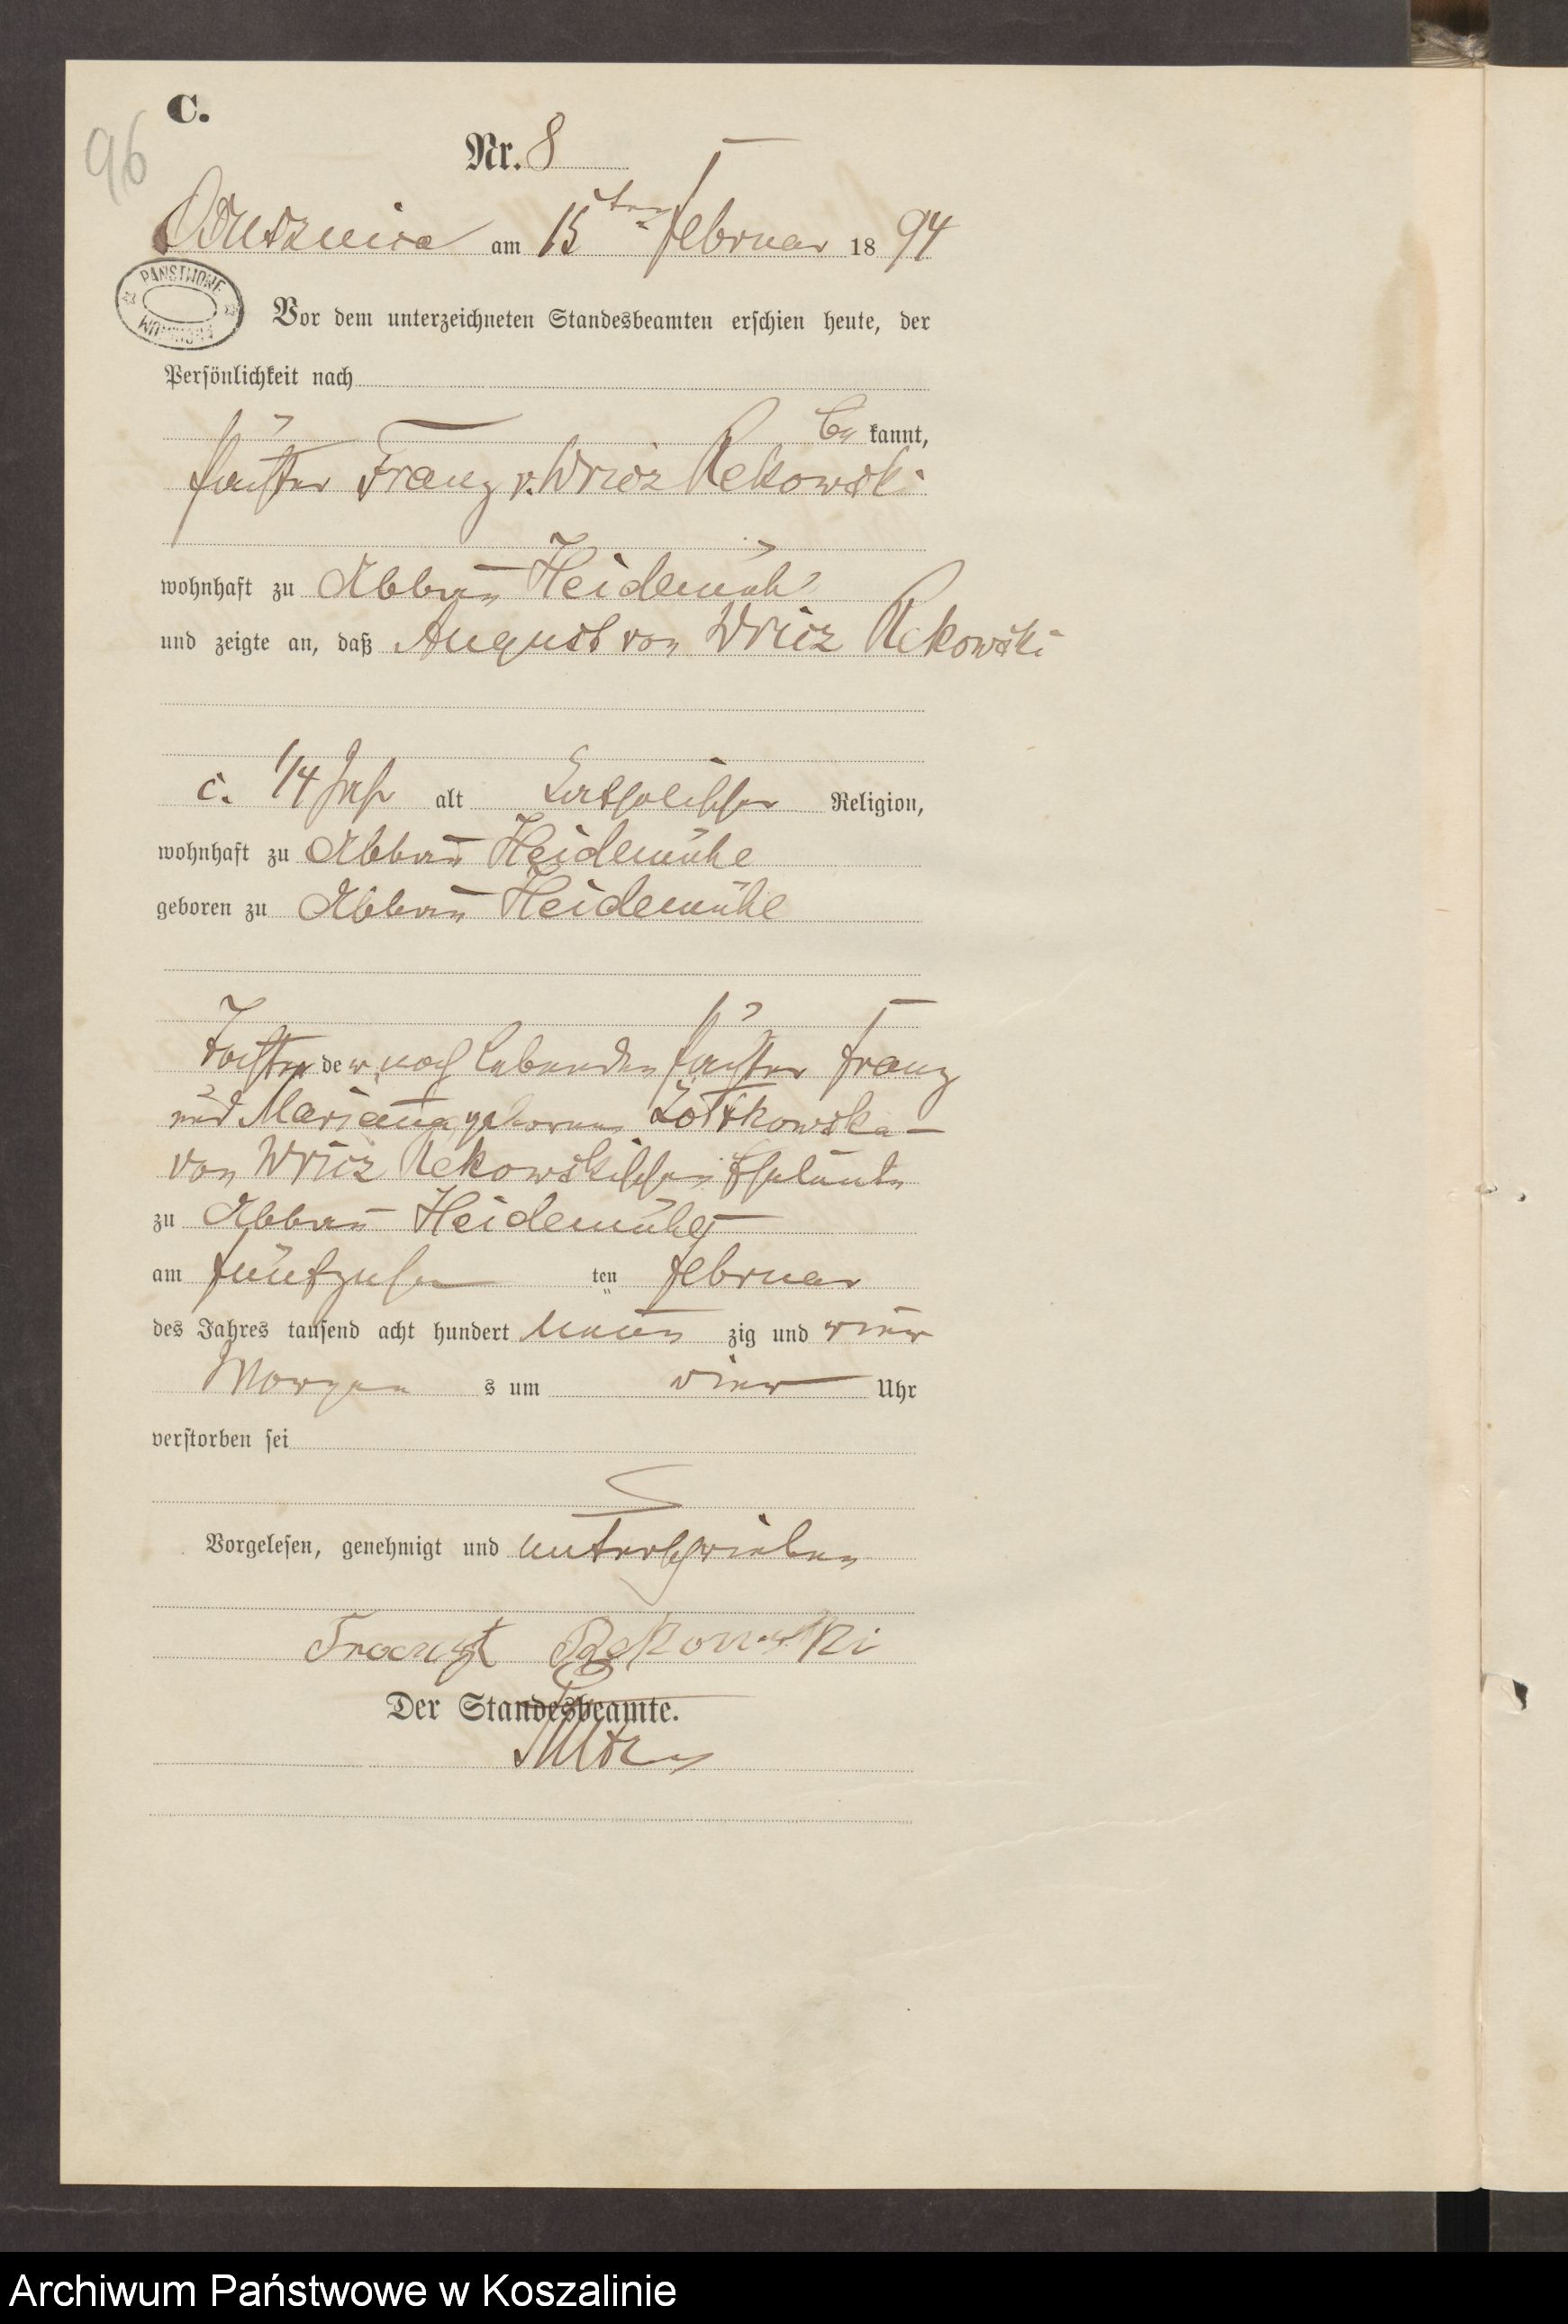 C.
96
Nr. 8
am 15ten Februar 1894
PANSTWOWE
Vor dem unterzeichneten Standesbeamten erschien heute, der
Persönlichkeit nach
be kannt,
Franz v. Wricz Rekowski
wohnhaft zu Abbau Heidemühl
und zeigte an, daß August von Wricz Rekowski
c. 1/4 Jahr alt katholischer Religion,
wohnhaft zu Abbau Heidemühle
geboren zu Abbau Heidemühle
der noch lebenden Franz
und Marianna geborene
von Wricz Rekowskischen Eheleute
zu Abbau Heidemühle
am fünfzehn ten Februar
des Jahres tausend acht hundert neun zig und vier
Morgen s um vier Uhr
verstorben sei
Vorgelesen, genehmigt und unterschrieben
Rekowski
Der Standesbeamte.
Archiwum Państwowe w Koszalinie